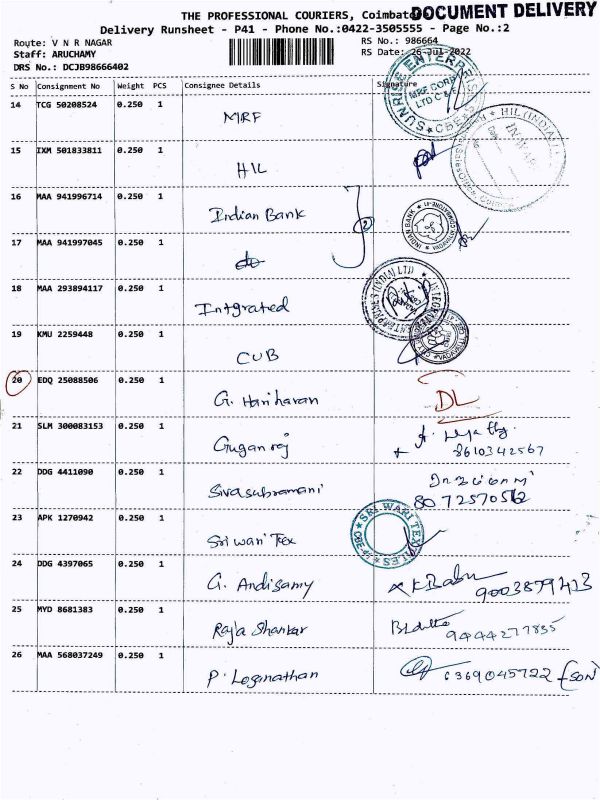 DOCUMENT DELIVERY
THE PROFESSIONAL COURIERS, Coimbato
Delivery Runsheet - P41 - Phone No.:0422-3505555 - Page No.:2
Route: V N R NAGAR
RS No.: 986664
Staff: ARUCHAMY
RS Date: 26-Jul-2022
DRS No.: DCJB98666402
S No Consignment No Weight PCS Consignee Details Signature
14 TCG 50208524 0.250 1 MRF
SUNRISE ENTERPRISES MRF CORP LTD C & F CBE
15 IXM 501833811 0.250 1 HIL
HIL (INDIA) INWARD
16 MAA 941996714 0.250 1 Indian Bank 2
INDIAN BANK
17 MAA 941997045 0.250 1 do
18 MAA 293894117 0.250 1 Intgrated
ENTERPRISES (INDIA) LTD INTEGRATED
19 KMU 2259448 0.250 1 CUB
20 EDQ 25088506 0.250 1 G. Hariharan DL
21 SLM 300083153 0.250 1 Guganraj
8610342567
22 DDG 4411090 0.250 1 Sivasubramani
8072570562
23 APK 1270942 0.250 1 Sri wari Tex
SRI WARI TEX CBE
24 DDG 4397065 0.250 1 G. Andisamy K Babu
9003879413
25 MYD 8681383 0.250 1 Raja Shankar
9444277835
26 MAA 568037249 0.250 1 P. Loganathan 6369045722 (SON